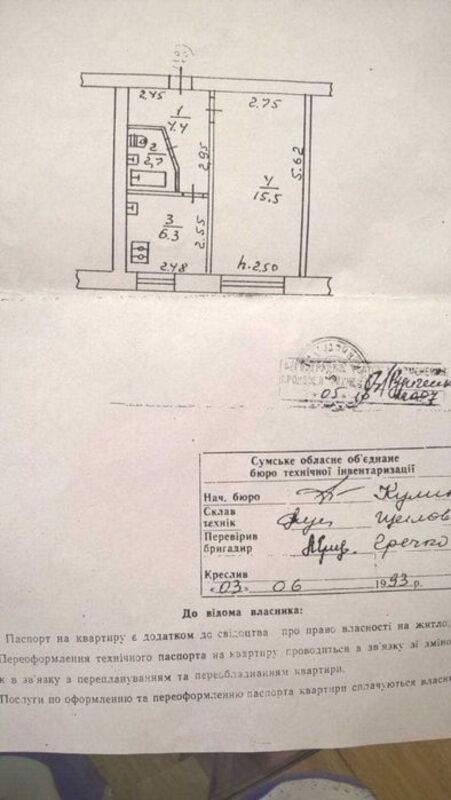 2.45
2.75
1
4.4
2
2,7
2.95
5.62
4
15.5
3
6.3
2.55
2.48
h.2.50
05
Сумське обласне об'єднане
бюро технічної інвентаризації
Нач. бюро
Склав
технік
Перевірив
бригадир Гречко
Креслив
«03» 06 1993 р.
До відома власника:
Паспорт на квартиру є додатком до свідоцтва про право власності на житло.
Переоформлення технічного паспорта на квартиру проводиться в зв'язку зі зміно
к в зв'язку з переплануванням та переобладнанням квартири.
Послуги по оформленню та переоформленню паспорта квартири сплачуються власн